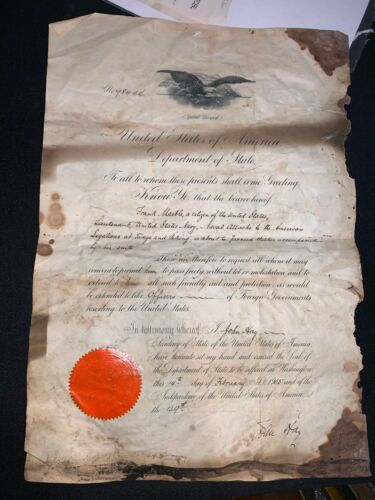 Special Passport
United States of America
Department of State,
To all to whom these presents shall come Greeting
Know Ye that the bearer hereof
Frank Marble, a citizen of the United States,
Lieutenant, United States Navy, Naval Attaché to the American
Legations at Tokyo and Peking is about to proceed thither accompanied
by his suite
These are therefore to request all whom it may
concern to permit him to pass freely without let or molestation and to
extend to him all such friendly aid and protection, as would
be extended to like Officers of Foreign Governments
resorting to the United States.
In testimony whereof I, John Hay
Secretary of State of the United States of America
have hereunto set my hand and caused the Seal of
the Department of State to be affixed at Washington
this day of February A.D. 1905 and of the
Independence of the United States of America
the 129th
John Hay